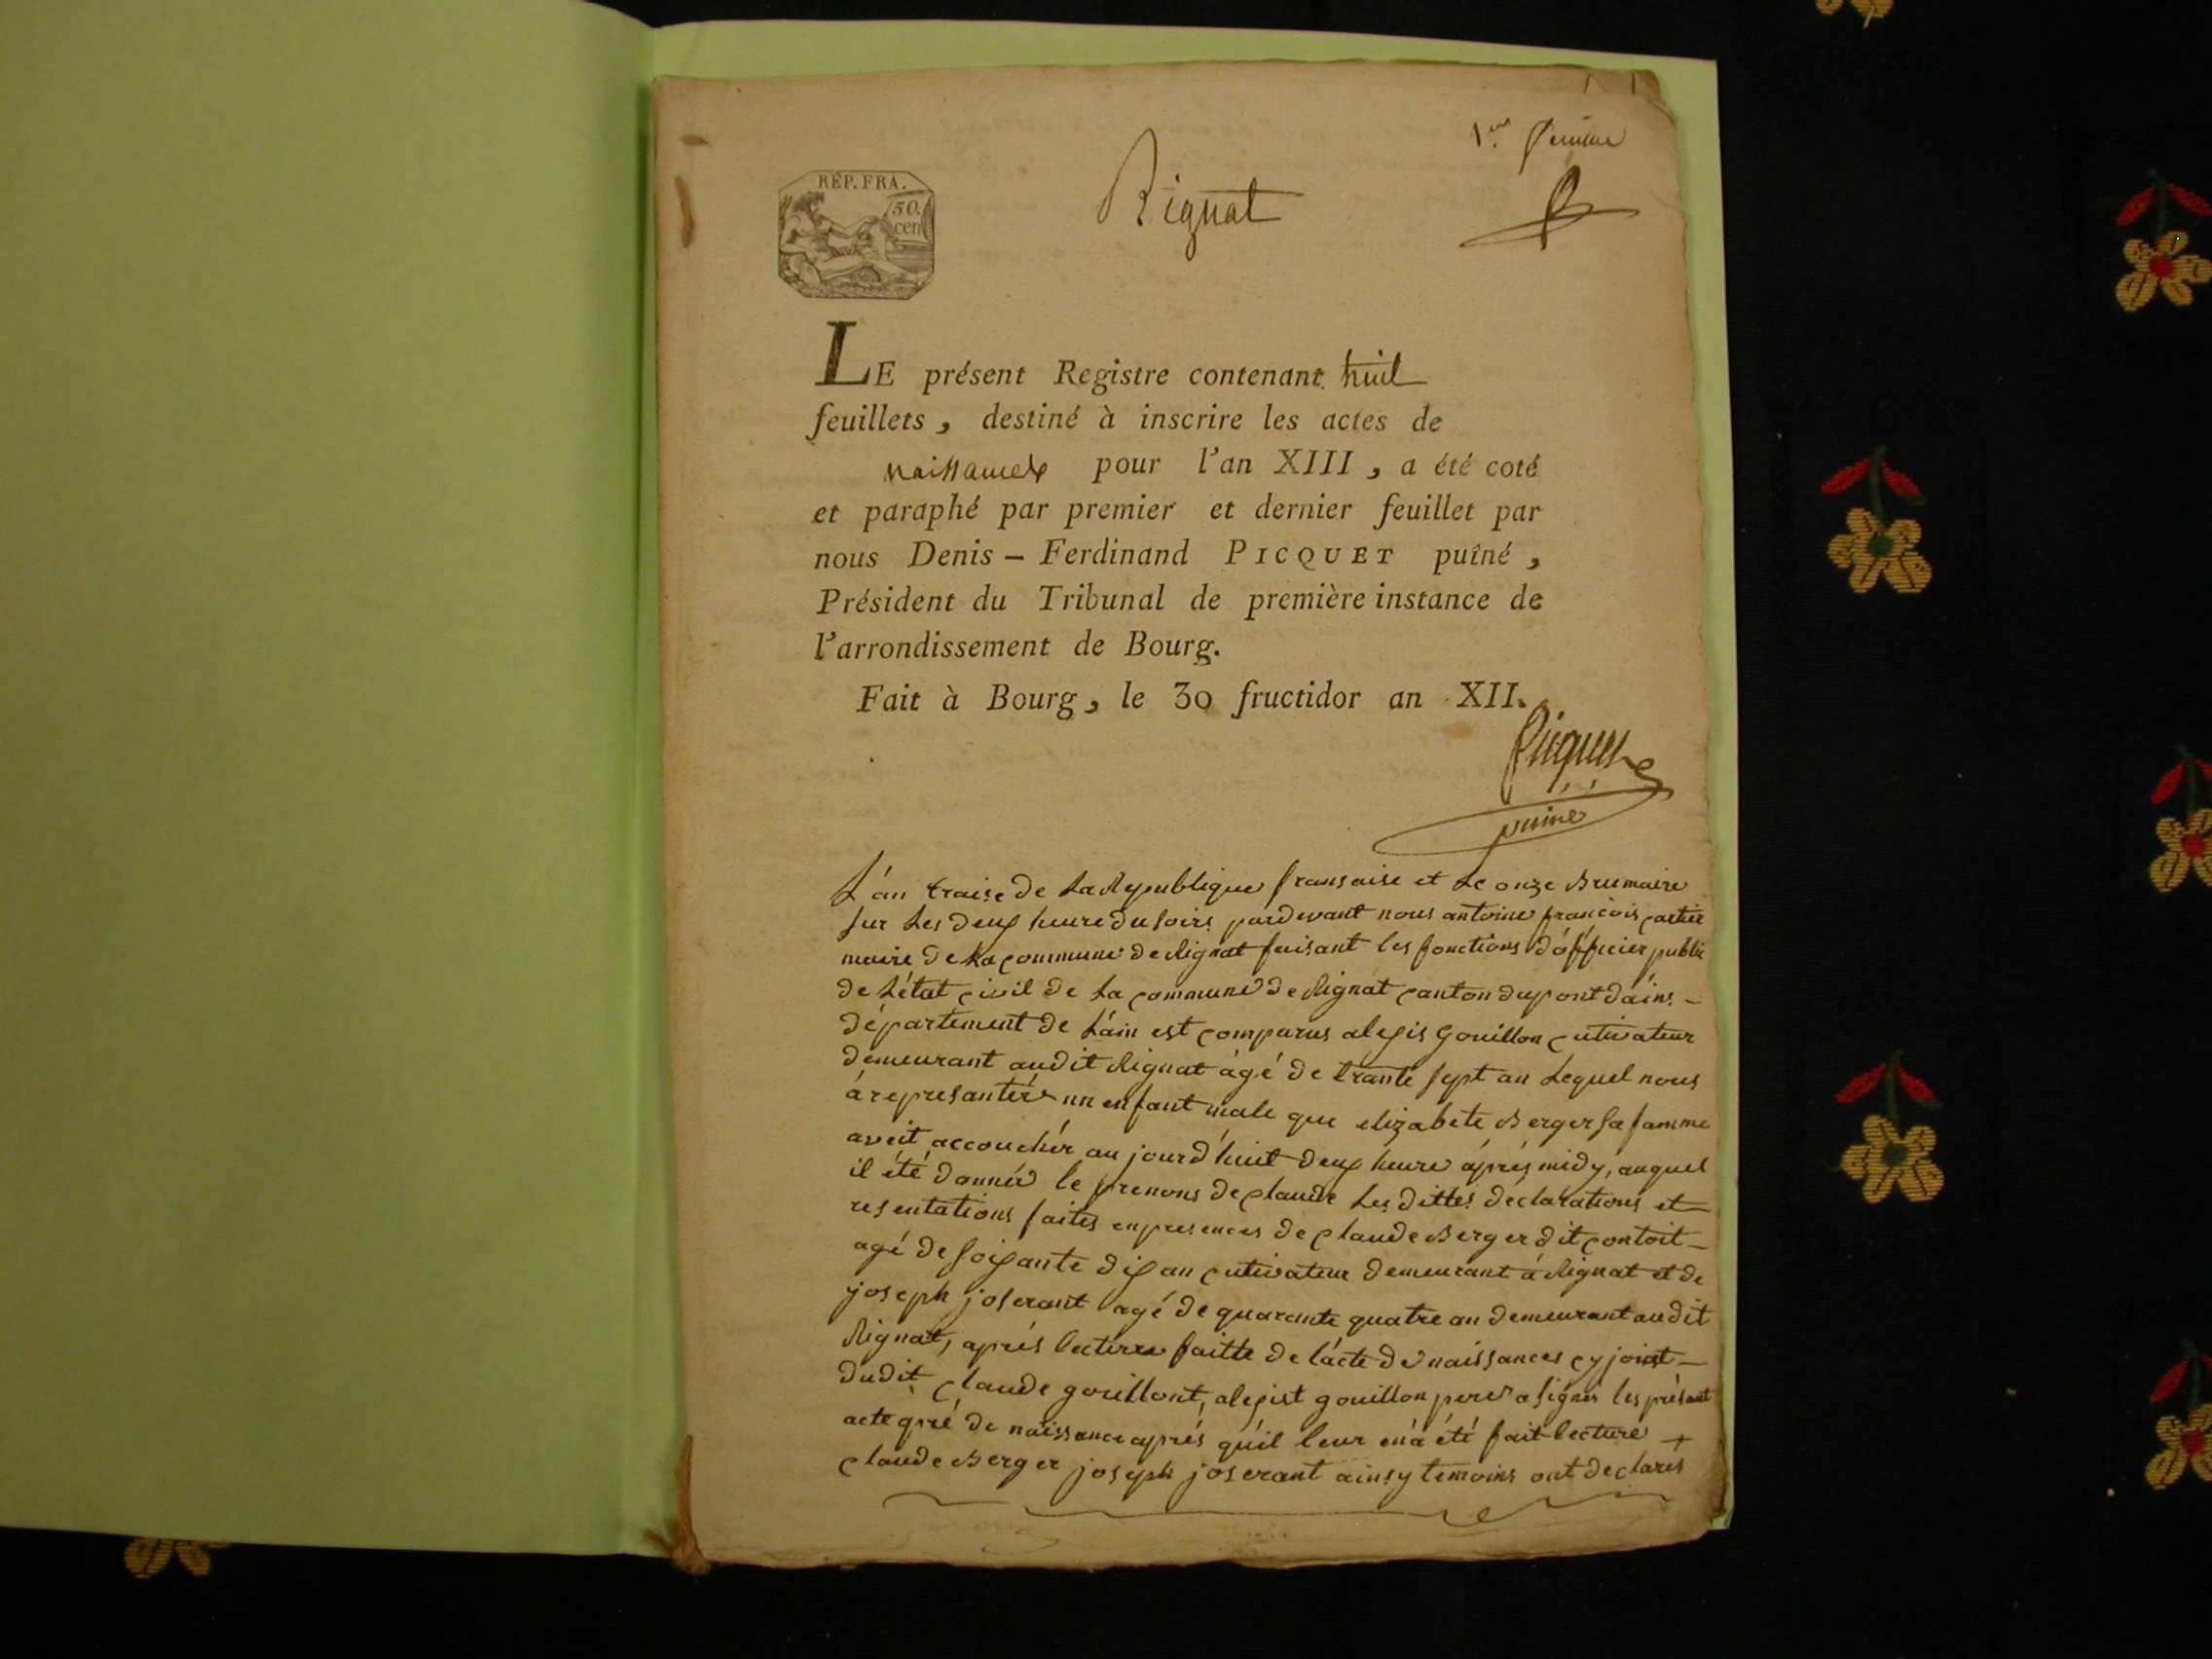 1er feuillet
RÉP. FRA.
50.
cen
Rignat
LE présent Registre contenant huit
feuillets, destiné à inscrire les actes de
naissances pour l'an XIII, a été coté
et paraphé par premier et dernier feuillet par
nous Denis - Ferdinand PICQUET puîné,
Président du Tribunal de première instance de
l'arrondissement de Bourg.
Fait à Bourg, le 30 fructidor an XII.
Picquet
puiné
L'an traise de La Republique fransaise et Le onze Brumaire
sur Les deux heure du soirs pardevant nous antoine françois cartier
maire de La commune de Rignat faisant les fonctions d'officier public
de L'état civil de La commune de Rignat canton du pont d'ains -
département de L'ain est comparus alexis Gouillon cutivateur
demeurant audit Rignat àgé de trante sept an Lequel nous
à represantér un enfant male que elizabete Berger sa famme
aveit accouchér au jourd'huit deux heure aprés midy, auquel
il été donnér le prenons de claude Les dittes déclarations et
resentations faites en presences de claude Berger dit contoit -
agé de soixante dix an cutivateur demeurant à Rignat et de
joseph joserant agé de quarante quatre an demeurant audit
Rignat, aprés lecture faitte de l'acte de naissances cy joint -
dudit claude gouillont, alexist gouillon pere a signér les présant
acte de naissance aprés qu'il leur en'a été fait lecture +
claude Berger joseph joserant ainsy temoins ont declares